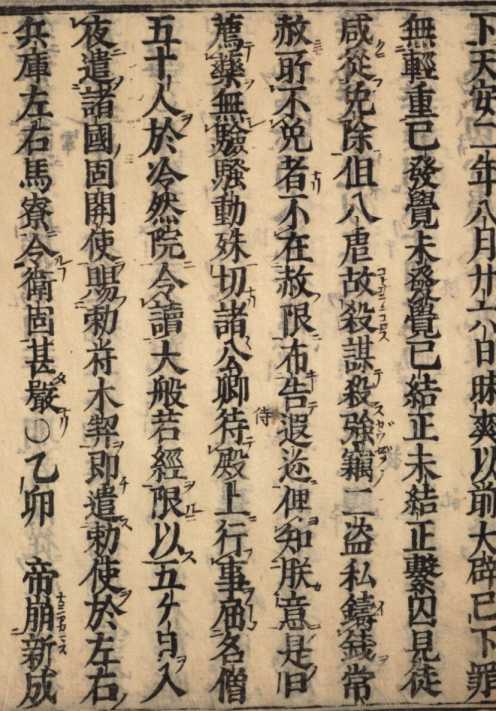 下天安二年八月廿六日昧爽以前大辟已下罪
無輕重已發覺未發覺已結正未結正繫囚見徒
咸從免除但八虐故殺謀殺強竊二盜私鑄錢常
赦所不免者不在赦限布告遐迩俾知朕意是旧
薦藥無驗騷動殊切諸公卿侍殿上行事屈名僧
五十人於冷然院令讀大般若經限以五ケ日入
夜遣諸國固関使賜勅符木契即遣勅使於左右
兵庫左右馬寮令衛固甚嚴○乙卯　帝崩新成